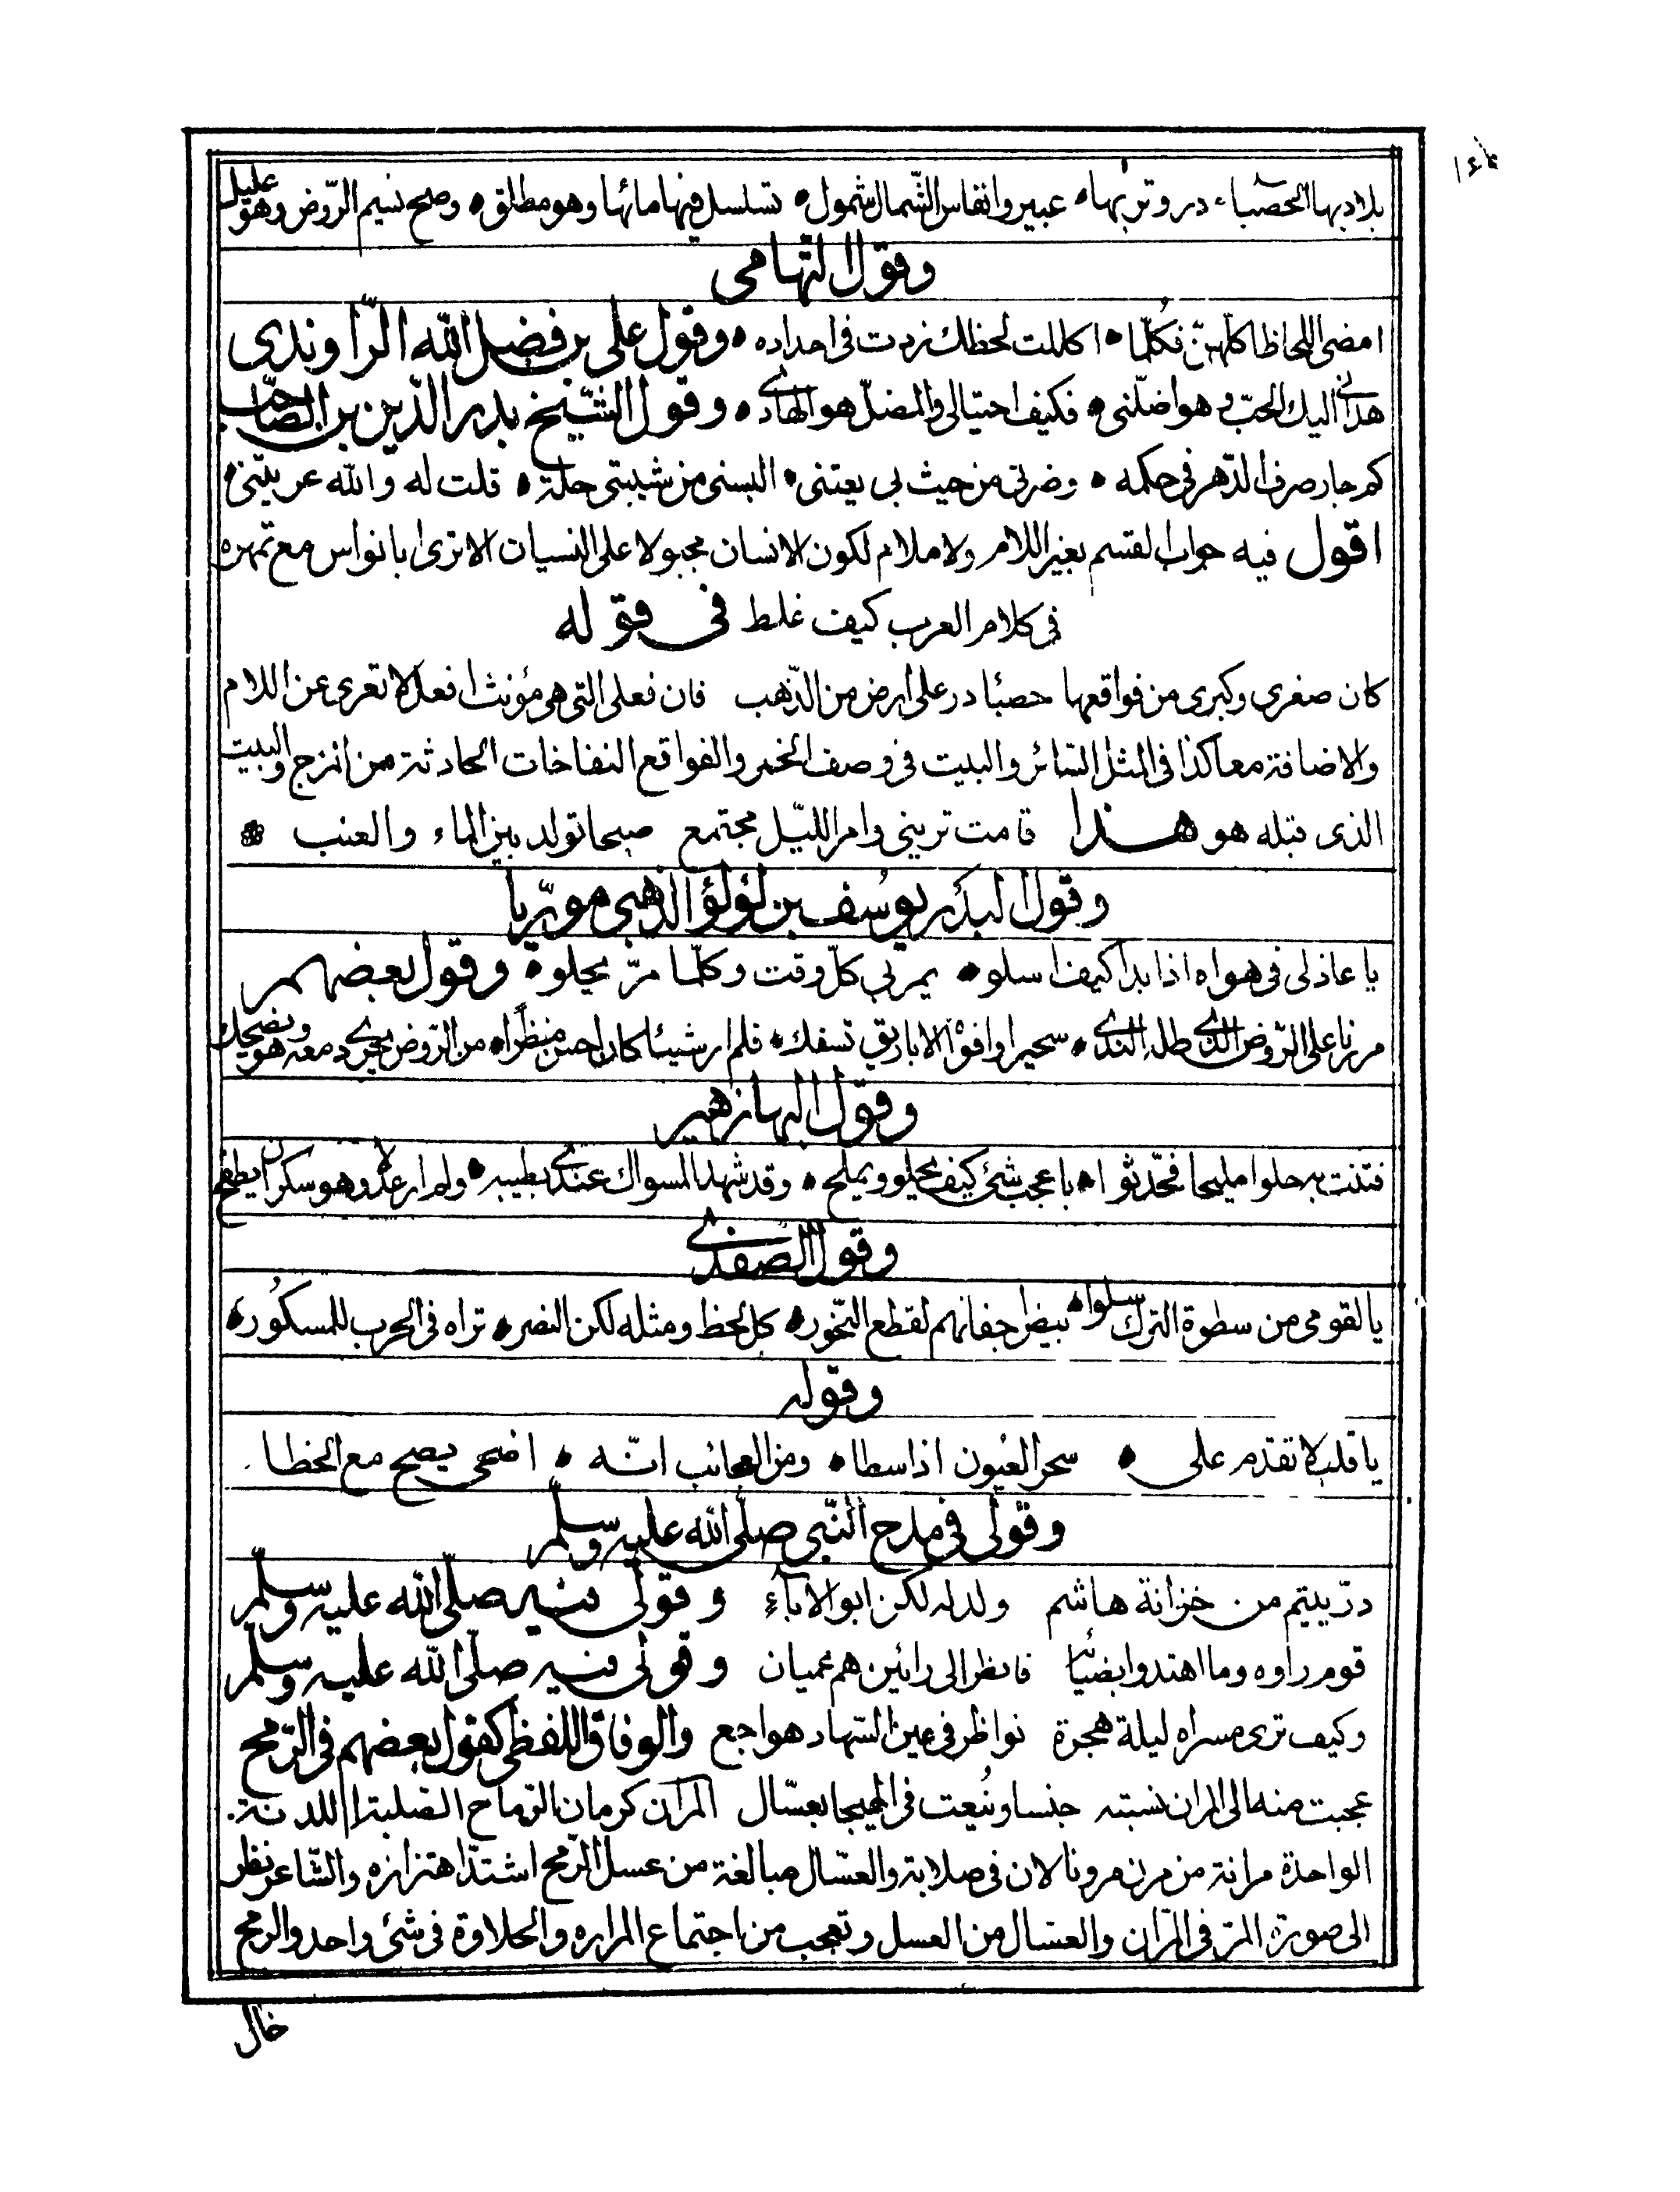 ١٤٨
بلاد بها الحصباء در وتربها عبير وانفاس الشّمال شمول تسلسل فيها مائها وهو مطلق وصح نسيم الرّوض وهو عليل
وقول التّهامى
امضى اللحاظ اكلّهنّ فكُلّما اكللت لحظك زدت فى احداده وقول على بن فضل اللّه الرّاوندى
هدانى اليك الحبّ وهو اضلّنى فكيف احتيالى والمضلّ هو الهادى وقول الشّيخ بدر الدّين بن الصّاحب
كم جار صرف الدّهر فى حكمه وضرنى من حيث بى يعتنى البسنى من شيبتى حلة قلت له والله عريتنى
اقول فيه جواب القسم بغير اللام ولا ملام لكون الانسان مجبولا على النسيان الا ترى ابا نواس مع تمهره
فى كلام العرب كيف غلط فى قوله
كان صغرى وكبرى من فواقعها حصبا در على ارض من الذّهب فان فعلى التى هى مؤنث افعل لا تعرى عن اللام
والاضافة معا كذا فى المثل السّائر والبيت فى وصف الخمر والفواقع النفاخات الحادثة من المزج والبيت
الذى قبله هو هذا قامت ترينى وامر الليّل مجتمع صبحا تولد بين الماء والعنب
وقول البدر يوسف بن لؤلؤ الذهبى مورّيا
يا عاذلى فى هواه اذا بدا كيف اسلو يمر بى كلّ وقت وكلّما مرّ يحلو وقول بعضهم
مررنا على الرّوض الذى طله الندى سحيرا وافواه الاباريق تسفك فلم ار شيئا كان احسن منظرا من الرّوض يجرى دمعه وهو يضحك
وقول البها زهير
فتنت به حلوا مليحا فحّدثوا باعجب شئ كيف يحلو ويملح وقد شهد المسواك عندى بطيبه ولم ار عدلا وهو سكران يطفح
وقول الصفدى
يا لقومى من سطوة الترك سلوا بيض اجفانهم لقطع النّحور كل لحظ ومثله لكن النصر تراه فى الحرب للمسكور
وقوله
يا قلب لا تقدم على سحر العيون اذا سطا ومن العجائب انّه اضحى يصح مع الخطا
وقولى فى مدح النّبى صلّى الله عليه وسلم
درّ يتيم من خزانة هاشم ولد له لكن ابو الاباء وقولى فيه صلّى الله عليه وسلّم
قوم راوه وما اهتدوا بضيائه فانظر الى رائين هم عميان وقولى فيه صلّى الله عليه وسلّم
وكيف ترى مسراه ليلة هجرة نواظر فى عين السّهاد هواجع والوفاق اللفظى كقول بعضهم فى الرّمح
عجبت منه الى المران نسبته جنسا ونُعت فى الهيجا بعسّال المران كرمان الرّماح الصّلبة اللدنة
الواحدة مرانة من مرن مرونا لان فى صلابة والعسّال مبالغة من عسل الرّمح اشتدّ اهتزازه والشّاعر نظر
الى صورة المرّ فى المرّان والعسال من العسل وتعجب من اجتماع المراره والحلاوة فى شئ واحد والرمح
خال